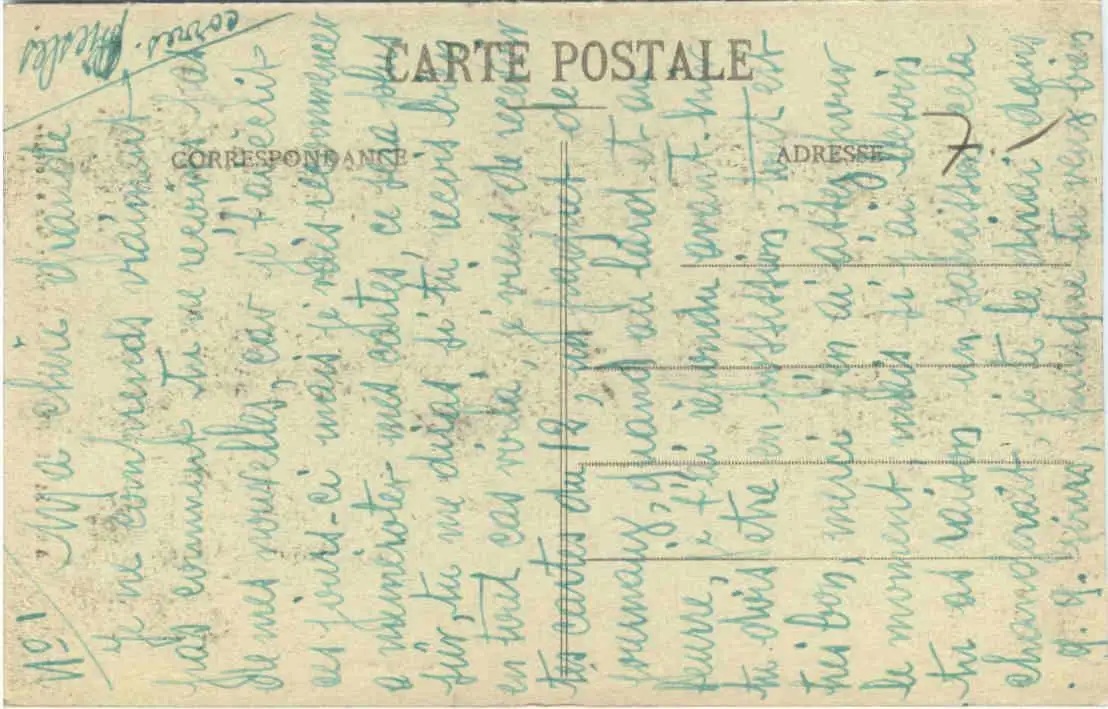 Nº 1
corres.
Ma chère
je ne comprends vraiment
pas comment tu ne reçois pas
de mes nouvelles, car je t'ai écrit
ces jours-ci mais je vais recommencer
a numéroter mes cartes, ce sera plus
sûr, tu me diras si tu reçois bien
en tout cas voilà, je viens de recevoir
tes cartes du 12, un paquet de
journaux, quand au lard et au
beurre, je t'ai répondu avant-hier
tu dois être en possession, tout est
très bon, merci j'en ai assez pour
le moment mais si j'ai besoin
tu as raison un saucisson cela
changerait, je te le dirai dans
q.q. jours, puisque tu veux bien
CARTE POSTALE
CORRESPONDANCE
ADRESSE
7.